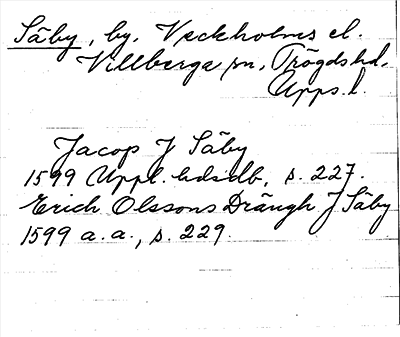 Säby, by. Veckholms el.
Villberga sn, Trögds hd,
Upps. l.
Jacop J Säby
1599 Uppl. hdsdb, s. 227.
Erich Olssons Drängh J Säby
1599 a.a., s. 229.